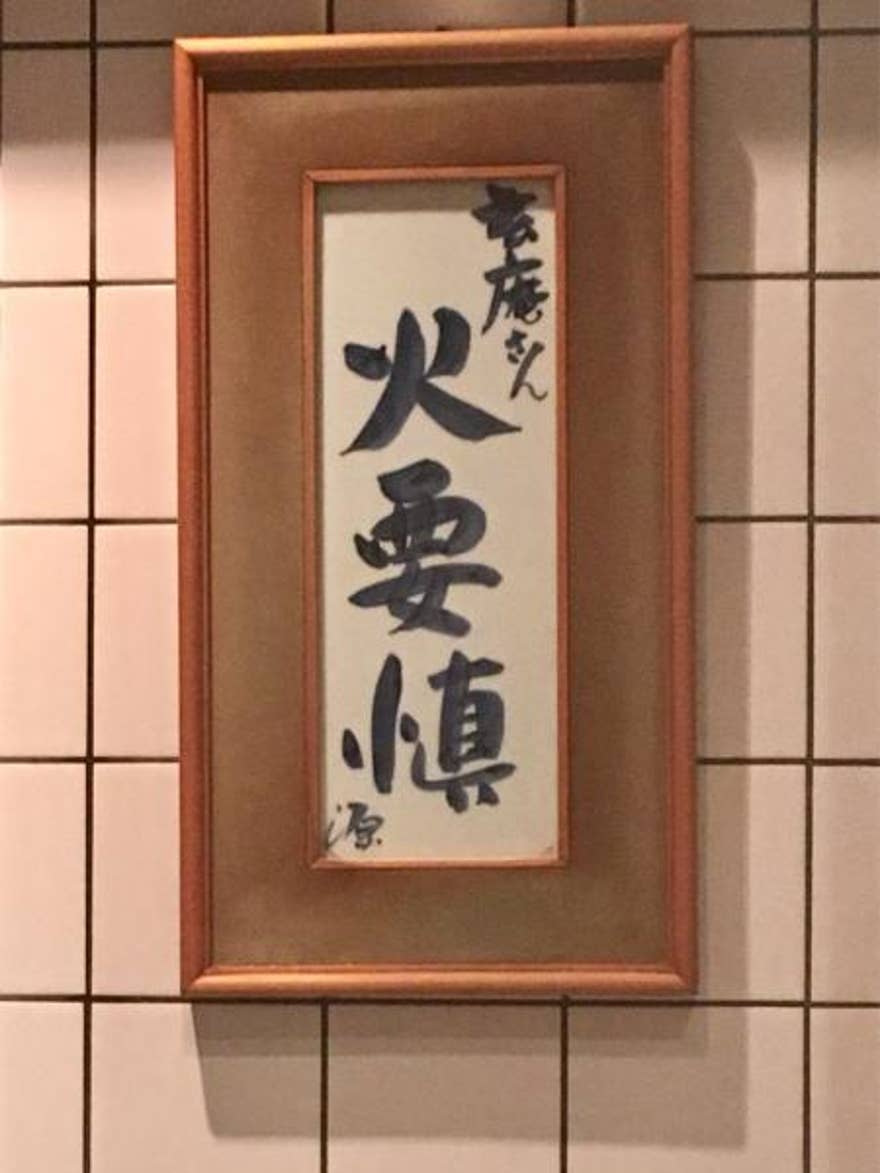 玄庵さん
火要慎
源